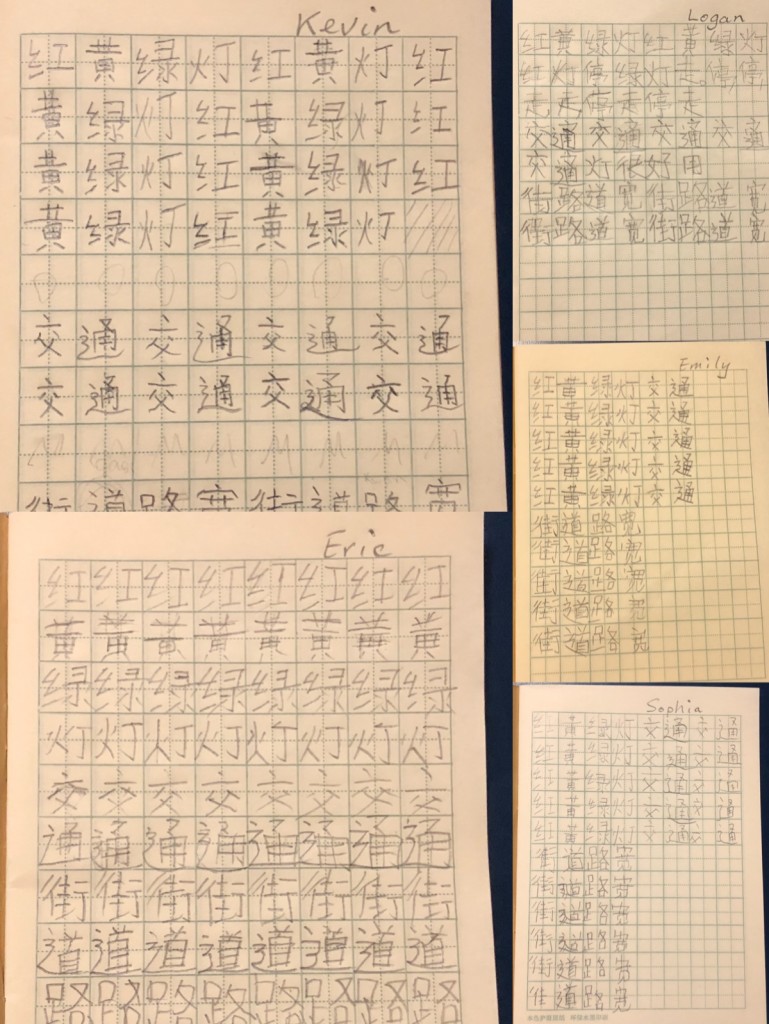 Kevin
红黄绿灯红黄灯红
黄绿灯红黄绿灯红
黄绿灯红黄绿灯红
黄绿灯红黄绿灯
交通交通交通交通
交通交通交通交通
街道路宽街道路宽
Eric
红红红红红红红红
黄黄黄黄黄黄黄黄
绿绿绿绿绿绿绿绿
灯灯灯灯灯灯灯灯
交交交交交交交交
通通通通通通通通
街街街街街街街街
道道道道道道道道
路路路路路路路路
Logan
红黄绿灯红黄绿灯
红灯停,绿灯走。停,停,
走,走停走停走
交通交通交通交通
交通灯很好用
街路道宽街路道宽
街路道宽街路道宽
Emily
红黄绿灯交通
红黄绿灯交通
红黄绿灯交通
红黄绿灯交通
红黄绿灯交通
街道路宽
街道路宽
街道路宽
街道路宽
街道路宽
Sophia
红黄绿灯交通交通
红黄绿灯交通交通
红黄绿灯交通交通
红黄绿灯交通交通
红黄绿灯交通交通
街道路宽
街道路宽
街道路宽
街道路宽
街道路宽
街道路宽